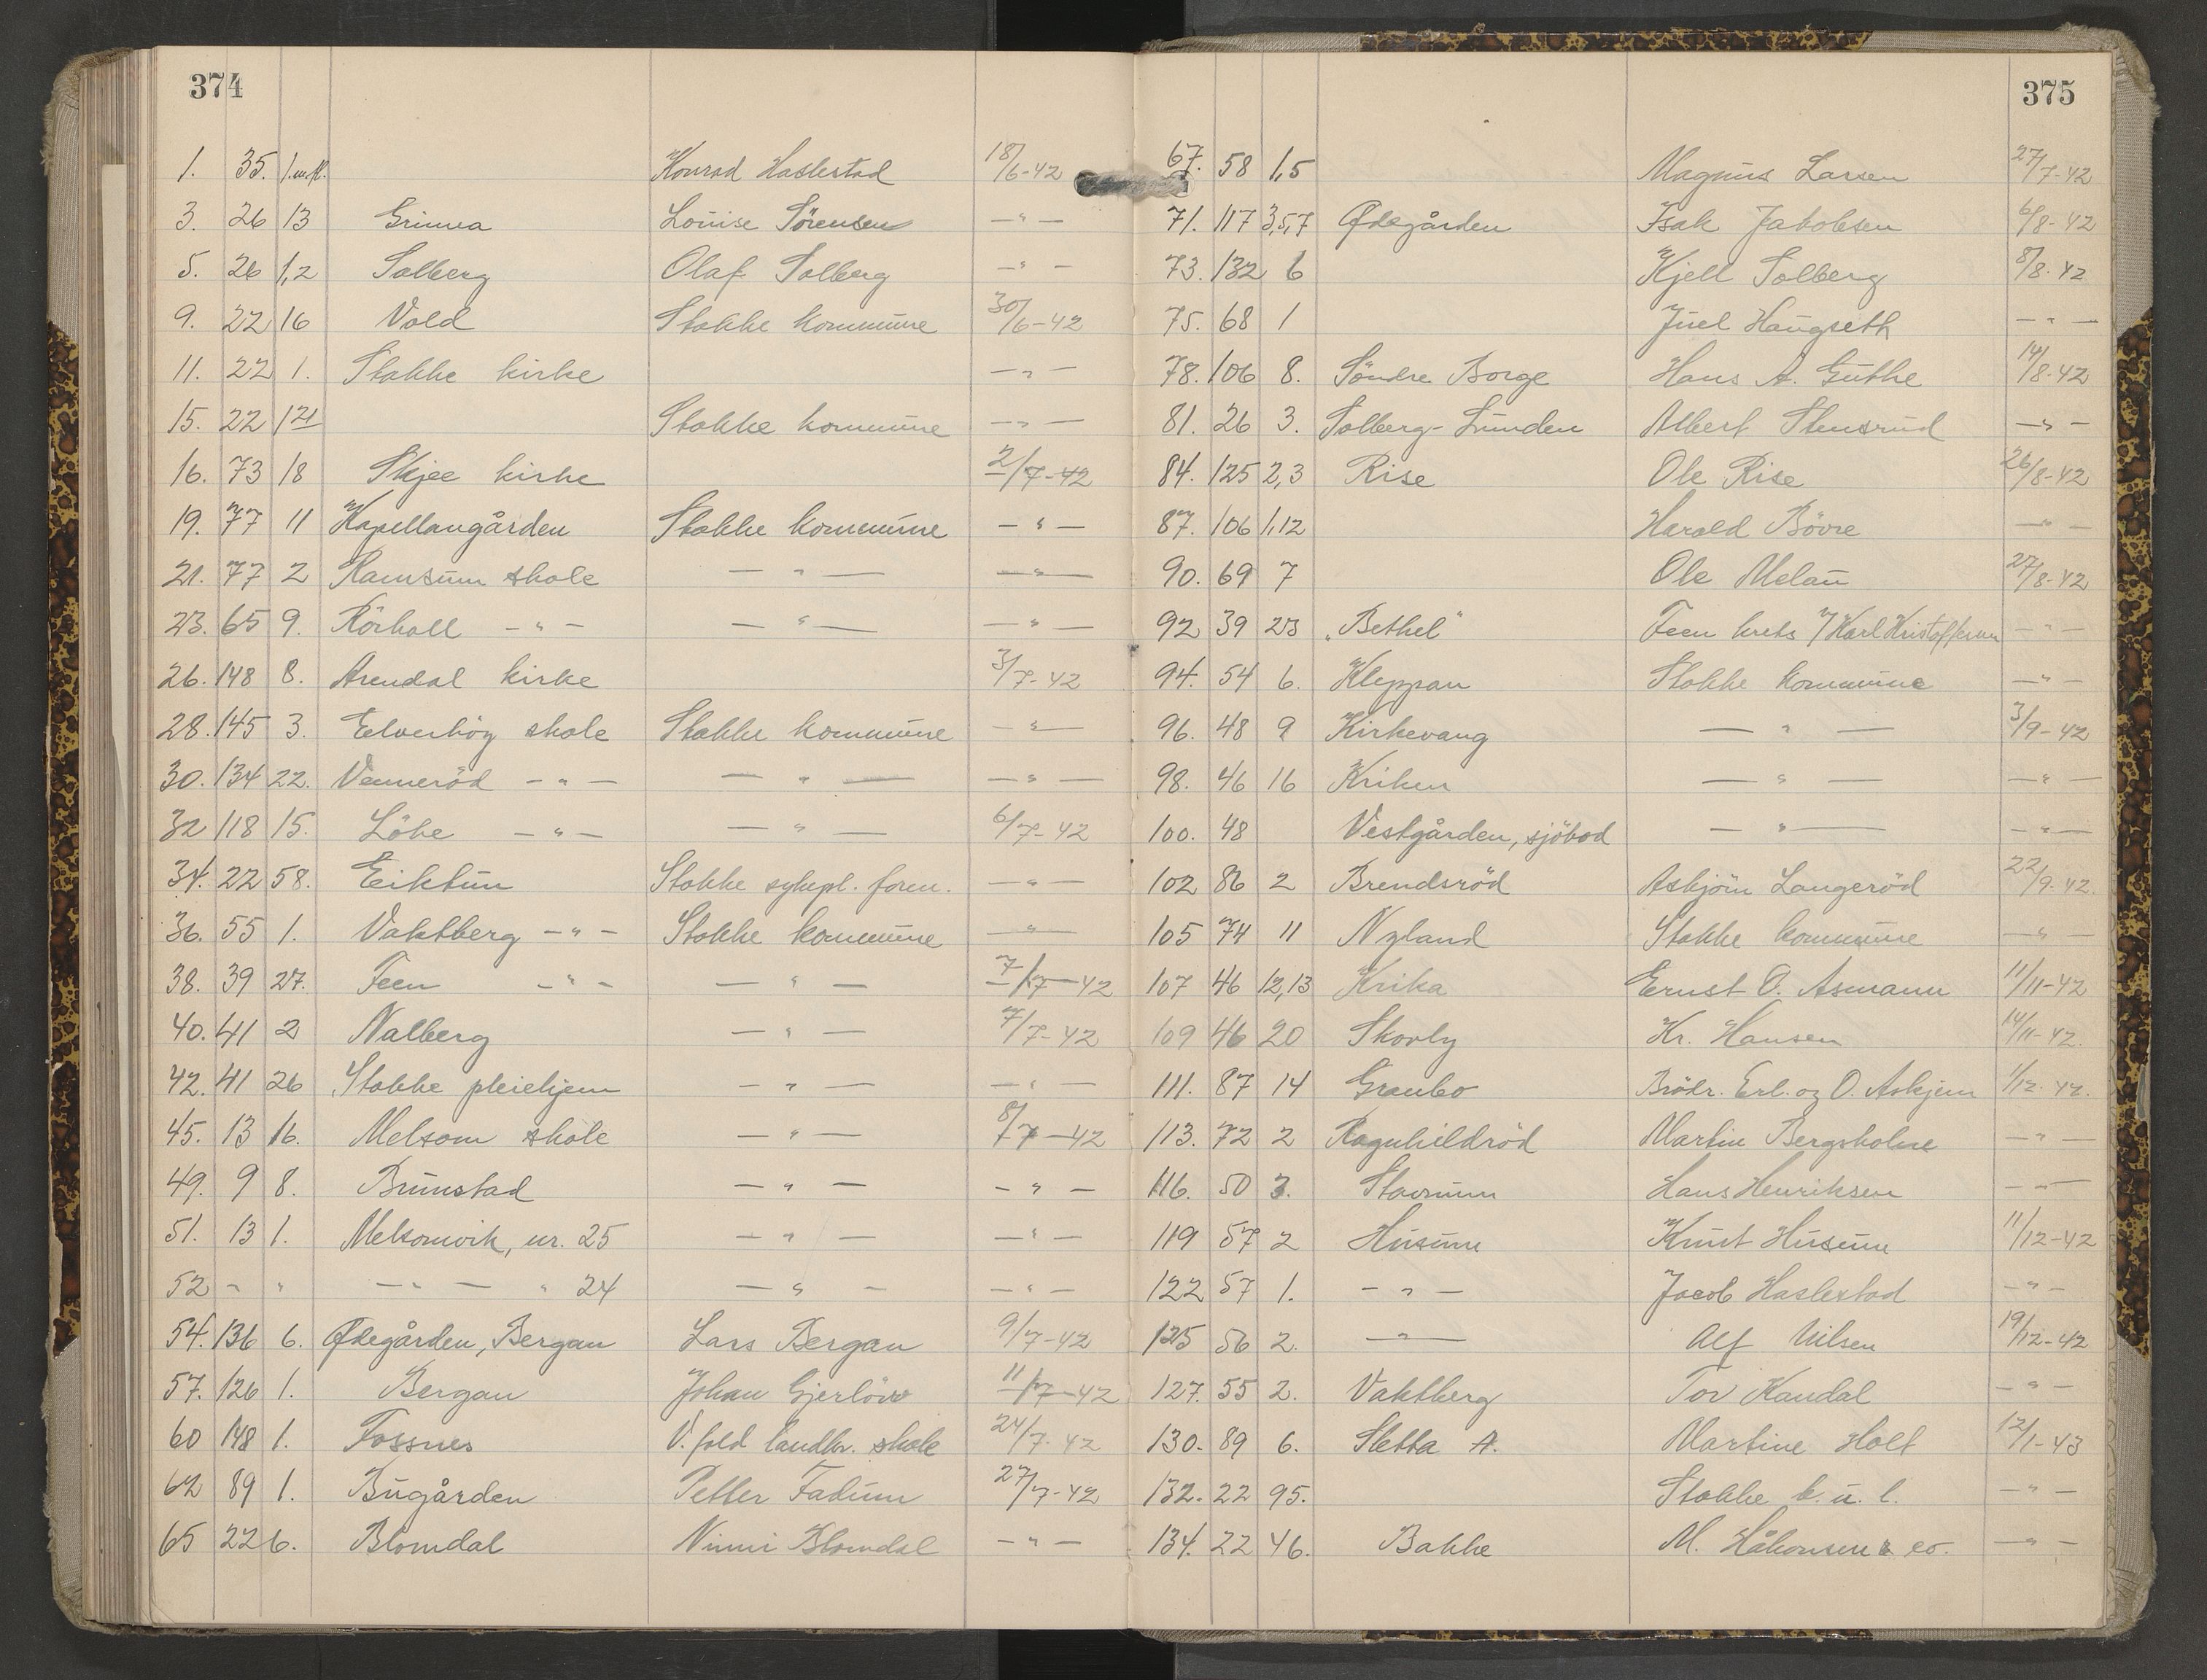 374
1. 35. 1.m.fl. Konrad Haslestad 18/6-42
3. 26 13 Grimea Louise Sørensen —"—
5. 26 1,2 Solberg Olaf Solberg —"—
9. 22 16 Vold Stokke kommune 30/6-42
11. 22 1. Stokke kirke —"—
15. 22 121 Stokke kommune —"—
16. 73 18 Skjee kirke 2/7-42
19. 77 11 Kapellangården Stokke kommune —"—
21. 77 2 Ramsum skole —"— —"—
23. 65 9. Rörkoll —"— —"— —"—
26. 148 8. Arendal kirke 3/7-42
28. 145 3. Elverhöy skole Stokke kommune —"—
30. 134 22. Venneröd —"— —"— —"—
32 118 15. Löke —"— —"— 6/7-42
34. 22 58. Eiktun Stokke sykepl. foren. —"—
36. 55 1. Vaktberg —"— Stokke kommune —"—
38. 39 27. Feen —"— —"— 7/7-42
40. 41 2 Nalberg —"— 7/7-42
42. 41 26 Stokke pleiehjem —"— —"—
45. 13 16. Melsom skole —"— 8/7-42
49. 9 8. Brunstad —"— —"—
51. 13 1. Melsomvik, nr. 25 —"— —"—
52 - " —"— " 24 —"— —"—
54. 136 6. Ødegården, Bergan Lars Bergan 9/7-42
57. 126 1. Bergan Johan Gjerlöw 11/7-42
60 148 1. Fossnes V.fold landbr. skole 24/7-42
62 89 1. Bugården Petter Fadum 27/7-42
65 22 6. Blomdal Ninni Blomdal —"—
375
67. 58 1,5 Magnus Larsen 27/7-42
71. 117 3,5,7 Ødegården Isak Jakobsen 6/8-42
73. 132 6 Kjell Solberg 8/8-42
75. 68 1 Juel Haugseth —"—
78. 106 8. Söndre Borge Hans A. Guthe 14/8-42
81. 26 3. Solberg-Lunden Albert Stensrud —"—
84. 125 2,3 Rise Ole Rise 26/8-42
87. 106 1,12 Harald Bövre —"—
90. 69 7 Ole Melau 27/8-42
92 39 23 „Bethel" Feen krets v/ Karl Kristoffersen —"—
94. 54 6. Kleppan Stokke kommune —"—
96. 48 9 Kirkevang —"— 3/9-42
98. 46 16 Kriken —"— —"—
100. 48 Vestgården, sjöbod —"— —"—
102 86 2 Brendsröd Asbjörn Langeröd 22/9-42.
105 74 11 Nyland Stokke kommune —"—
107 46 12,13 Krika Ernst O. Asmann 11/11-42
109 46 20 Skovly Kr. Hansen 14/11-42.
111. 87 14 Granbo Brödr. Erl. og O. Askjem 1/12-42.
113. 72 2 Ragnhildröd Martin Bergsholm —"—
116. 50 3. Stavnum Hans Henriksen —"—
119 57 2 Husum Knut Husum 11/12-42
122 57 1. —"— Jacob Haslestad —"—
125 56 2. —"— Alf Nilsen 19/12-42
127. 55 2. Vaktberg Tor Kandal —"—
130. 89 6. Sletta A. Martine Holt 12/1-43
132. 22 95. Stokke b. u. l. —"—
134. 22 46. Bakke M. Håkonsen & co. —"—